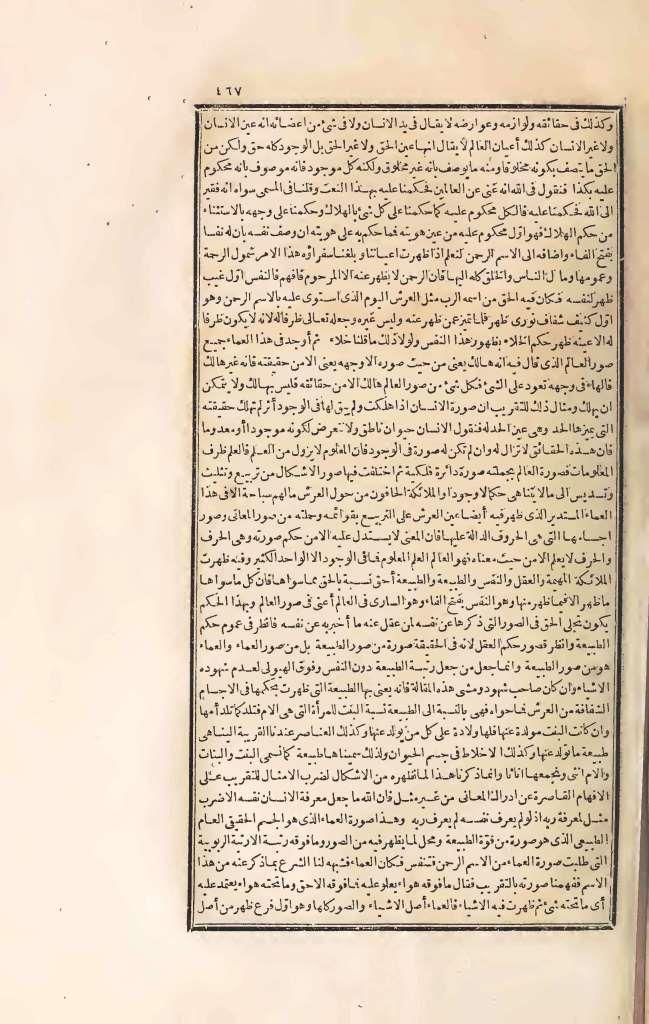 ٤٦٧
وكذلك فى حقائقه ولوازمه وعوارضه لا يقال فى يد الانسان ولا فى شئ من اعضائه انه عين الانسان
ولا غير الانسان كذلك أعيان العالم لا يقال انها عين الحق ولا غير الحق بل الوجود كله حق ولكن من
الحق ما يتصف بكونه مخلوقا ومنه ما يوصف بأنه غير مخلوق ولكنه كل موجود فانه موصوف بأنه محكوم
عليه بكذا فنقول فى الله انه غنى عن العالمين فحكمنا عليه بهذا النعت وقلنا فى المسمى سواه انه فقير
الى الله فحكمنا عليه فالكل محكوم عليه كما حكمنا على كل شئ بالهلاك وحكمنا على وجهه بالاستثناء
من حكم الهلاك فهو اول محكوم عليه من عين هويته فما حكم به على هويته ان وصف نفسه بان له نفسا
بفتح الفاء واضافه الى الاسم الرحمن لنعلم اذا ظهرت اعياننا وبلغنا سفراؤه هذا الامر شمول الرحمة
وعمومها ومآل الناس والخلق كله اليها فان الرحمن لا يظهر عنه الا المرحوم فافهم فالنفس اول غيب
ظهر لنفسه فكان فيه الحق من اسمه الرب مثل العرش اليوم الذى استوى عليه بالاسم الرحمن وهو
اول كثيف شفاف نورى ظهر فلما تميز عمن ظهر عنه وليس غيره وجعله تعالى ظرفا له لانه لا يكون ظرفا
له الا عينه ظهر حكم الخلاء بظهور هذا النفس ولولا ذلك ما قلنا خلاء ثم أوجد فى هذا العماء جميع
صور العالم الذى قال فيه انه هالك يعنى من حيث صوره الا وجهه يعنى الا من حقيقته فانه غير هالك
فالهاء فى وجهه تعود على الشئ فكل شئ من صور العالم هالك الا من حقائقه فليس بهالك ولا يتمكن
ان يهلك ومثال ذلك للتقريب ان صورة الانسان اذا هلكت ولم يبق لها فى الوجود أثر لم تهلك حقيقته
التى يميزها الحد وهى عين الحد له فنقول الانسان حيوان ناطق ولا نتعرض لكونه موجودا أو معدوما
فان هذه الحقائق لا تزال له وان لم تكن له صورة فى الوجود فان المعلوم لا يزول من العلم فالعلم ظرف
المعلومات فصورة العالم بجملته صورة دائرة فلكية ثم اختلفت فيها صور الاشكال من تربيع وتثليث
وتسديس الى ما لا يتناهى حكما لا وجودا والملائكة الحافون من حول العرش ما لهم سباحة الا فى هذا
العماء المستدير الذى ظهر فيه أيضا عين العرش على التربيع بقوائمه وحملته من صور المعانى وصور
اجسامها التى هى الحروف الدالة عليها فان المعنى لا يستدل عليه الا من حكم صورته وهى الحرف
والحرف لا يعلم الا من حيث معناه فهو العالم العلم المعلوم فما فى الوجود الا الواحد الكثير وفيه ظهرت
الملائكة المهيمة والعقل والنفس والطبيعة والطبيعة أحق نسبة بالحق مما سواها فان كل ما سواها
ما ظهر الا فيما ظهر منها وهو النفس بفتح الفاء وهو السارى فى العالم أعنى فى صور العالم وبهذا الحكم
يكون تجلى الحق فى الصور التى ذكرها عن نفسه لمن عقل عنه ما أخبر به عن نفسه فانظر فى عموم حكم
الطبيعة وانظر قصور حكم العقل لانه فى الحقيقة صورة من صور الطبيعة بل من صور العماء والعماء
هو من صور الطبيعة وانما جعل من جعل رتبة الطبيعة دون النفس وفوق الهيولى لعدم شهوده
الاشياء وان كان صاحب شهود ومشى هذه المقالة فانه يعنى بها الطبيعة التى ظهرت بحكمها فى الاجسام
الشفافة من العرش فما حواه فهى بالنسبة الى الطبيعة نسبة البنت للمرأة التى هى الام فتلد كما تلد أمها
وان كانت البنت مولدة عنها فلها ولادة على كل من يولد عنها وكذلك العناصر عندنا القريبة الينا هى
طبيعة ما تولد عنها وكذلك الاخلاط فى جسم الحيوان ولذلك سميناها طبيعة كما نسمى البنت والبنات
والام انثى ونجمعها اناثا وانما ذكرنا هذا لما نظهره من الاشكال لضرب الامثال للتقريب على
الافهام القاصرة عن ادراك المعانى من غير مثل فان الله ما جعل معرفة الانسان نفسه الا ضرب
مثل لمعرفة ربه اذ لو لم يعرف نفسه لم يعرف ربه وهذا صورة العماء الذى هو الجسم الحقيقى العام
الطبيعى الذى هو صورة من قوة الطبيعة ومحل لما يظهر فيه من الصور وما فوقه رتبة الا رتبة الربوبية
التى طلبت صورة العماء من الاسم الرحمن فتنفس فكان العماء فشبهه لنا الشرع بما ذكر عنه من هذا
الاسم ففهمنا صورته بالتقريب فقال ما فوقه هواء يعلو عليه فما فوقه الا حق وما تحته هواء يعتمد عليه
أى ما تحته شئ ثم ظهرت فيه الاشياء فالعماء أصل الاشياء والصور كلها وهو اول فرع ظهر من أصل